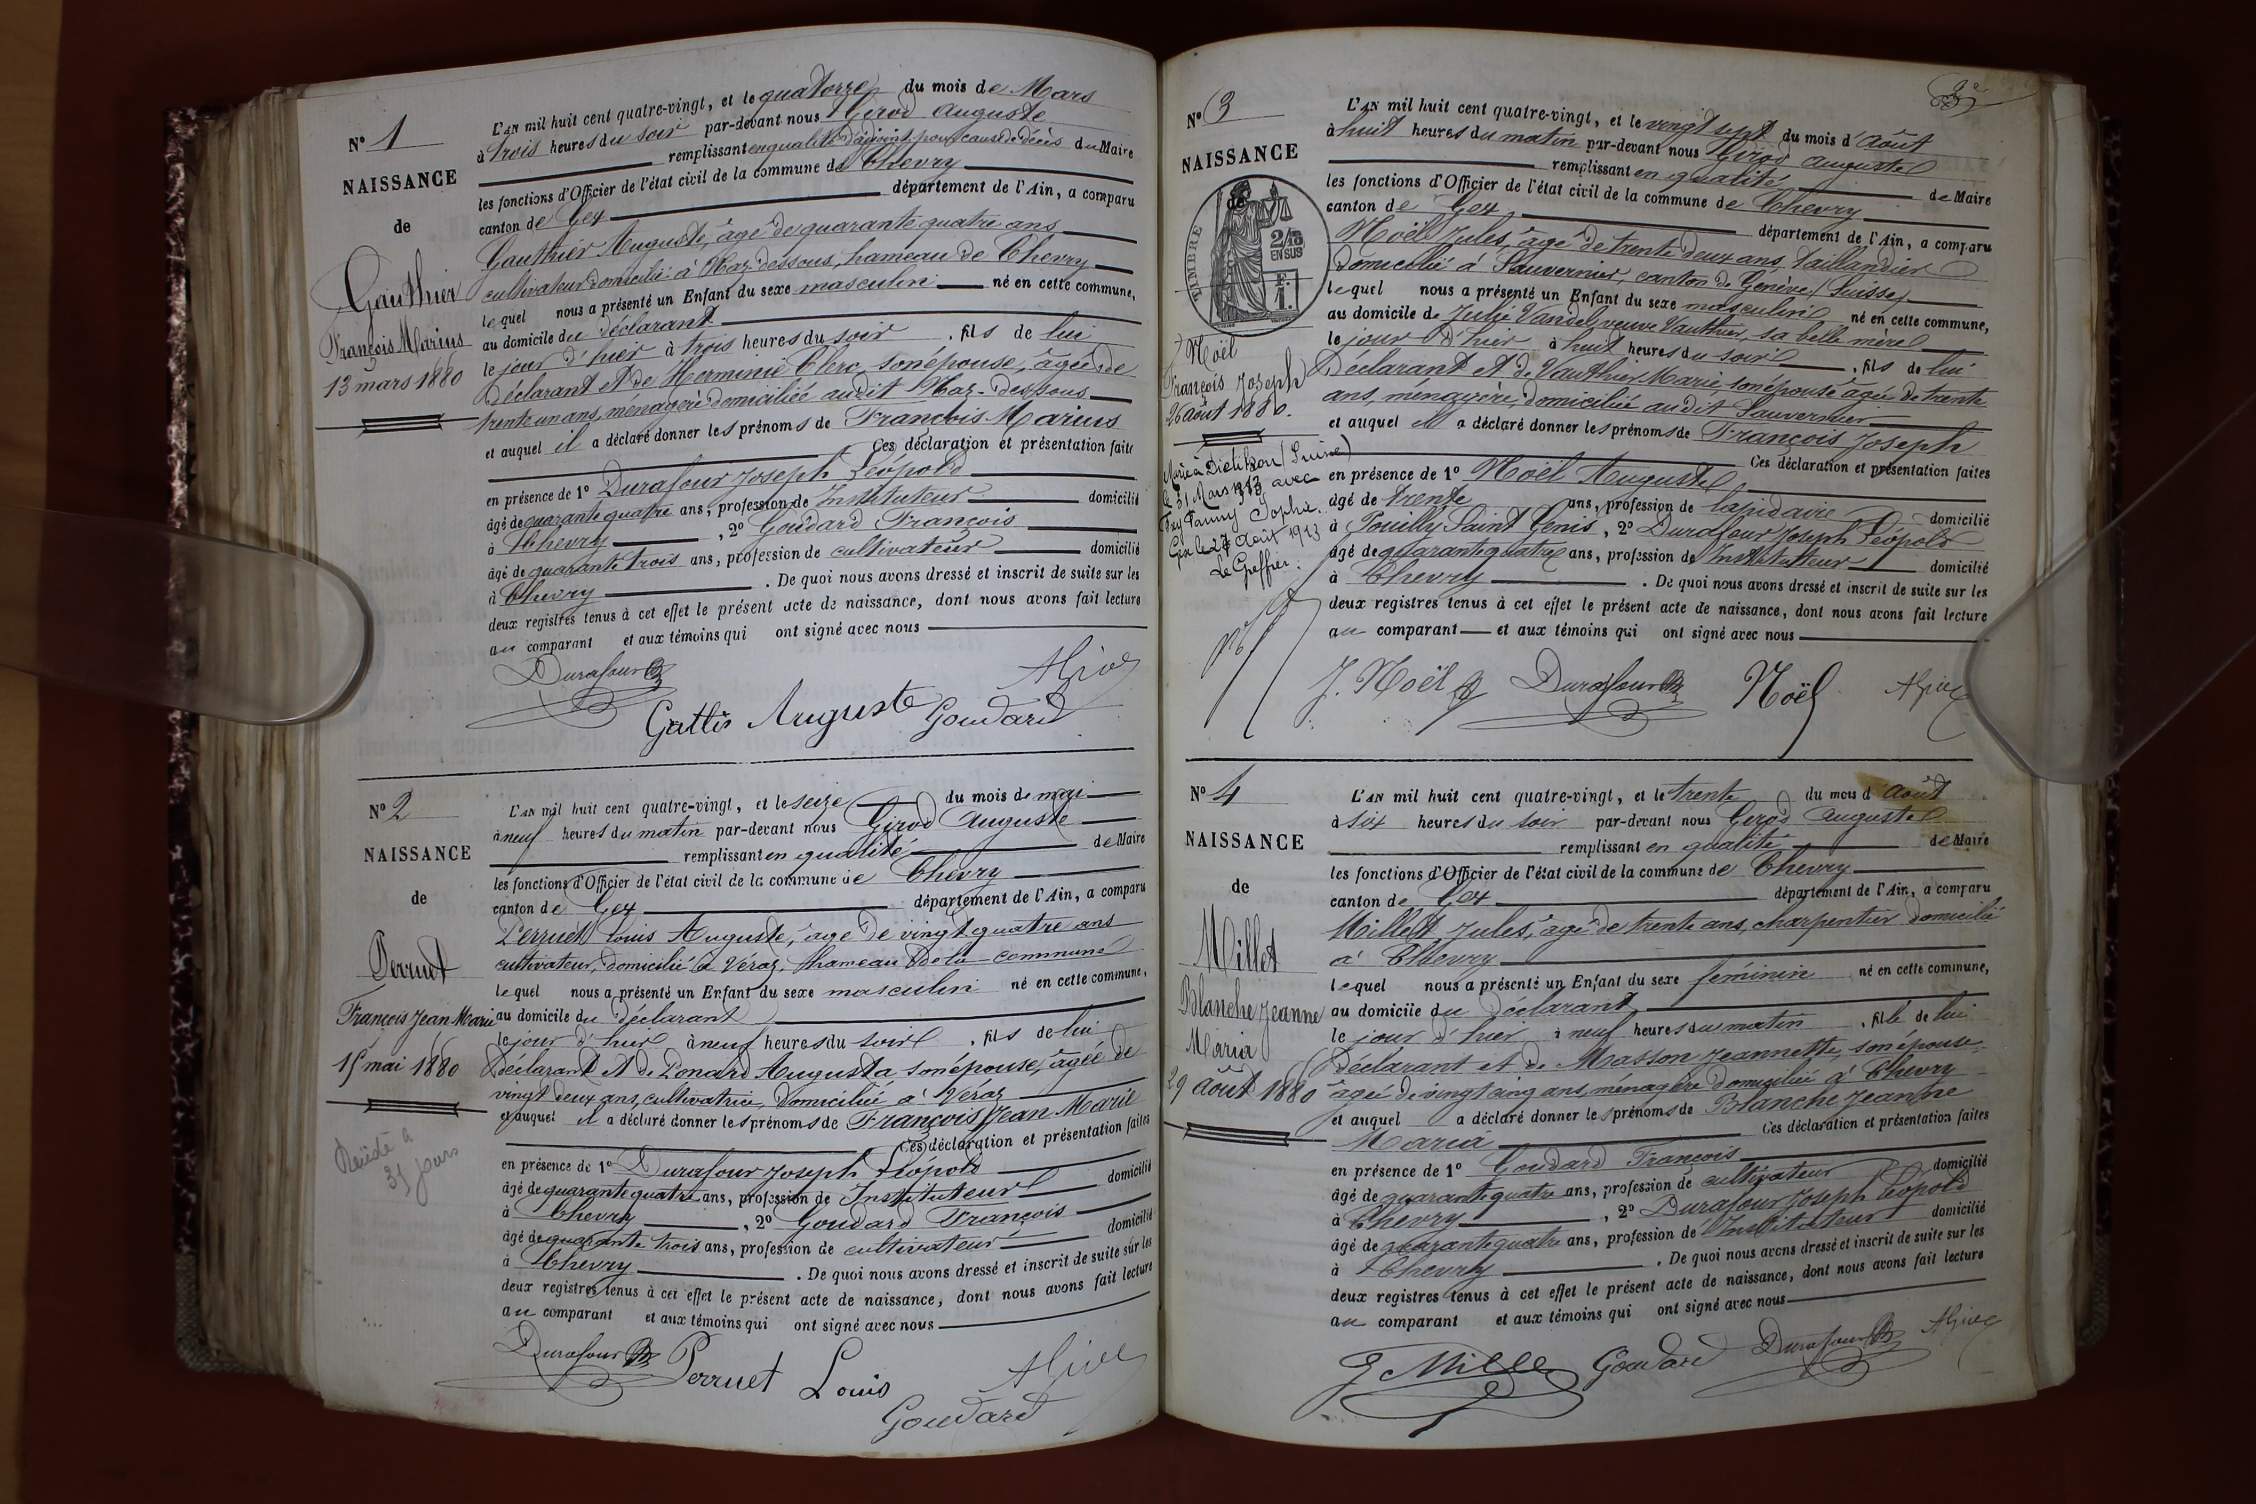 N° 1
NAISSANCE
de
Gauthier
François Marius
13 mars 1880
L'AN mil huit cent quatre-vingt, et le quatorze du mois de Mars
à trois heures du soir par-devant nous Girod Auguste
remplissant en qualité d'adjoint, pour cause de décès du Maire
les fonctions d'Officier de l'état civil de la commune de Chevry
canton de Gex département de l'Ain, a comparu
Gauthier Auguste, âgé de quarante quatre ans
cultivateur domicilié à Naz-dessous, hameau de Chevry
lequel nous a présenté un Enfant du sexe masculin né en cette commune,
au domicile du déclarant
le jour d'hier à trois heures du soir, fils de lui
déclarant et de Herminie Clerc, son épouse, âgée de
trente un ans, ménagère domiciliée audit Naz-dessous
et auquel il a déclaré donner les prénoms de François Marius
Ces déclaration et présentation faite
en présence de 1° Durafour Joseph Léopold
âgé de quarante quatre ans, profession de Instituteur domicilié
à Chevry, 2° Goudard François
âgé de quarante trois ans, profession de cultivateur domicilié
à Chevry. De quoi nous avons dressé et inscrit de suite sur les
deux registres tenus à cet effet le présent acte de naissance, dont nous avons fait lecture
au comparant et aux témoins qui ont signé avec nous
Durafour AGirod
Auguste Goudard
N° 2
NAISSANCE
de
Perruet
François Jean Marie
15 mai 1880
Décédé à
31 jours
L'AN mil huit cent quatre-vingt, et le seize du mois de mai
à neuf heures du matin par-devant nous Girod Auguste
remplissant en qualité de Maire
les fonctions d'Officier de l'état civil de la commune de Chevry
canton de Gex département de l'Ain, a comparu
Perruet Louis Auguste, âgé de vingt quatre ans
cultivateur, domicilié à Véraz, hameau de la commune
lequel nous a présenté un Enfant du sexe masculin né en cette commune,
au domicile du déclarant
le jour d'hier à neuf heures du soir, fils de lui
déclarant et de Ponard Augusta son épouse, âgée de
vingt deux ans, cultivatrice, domiciliée à Véraz
et auquel il a déclaré donner les prénoms de François Jean Marie
Ces déclaration et présentation faites
en présence de 1° Durafour Joseph Léopold
âgé de quarante quatre ans, profession de Instituteur domicilié
à Chevry, 2° Goudard François
âgé de quarante trois ans, profession de cultivateur domicilié
à Chevry. De quoi nous avons dressé et inscrit de suite sur les
deux registres tenus à cet effet le présent acte de naissance, dont nous avons fait lecture
au comparant et aux témoins qui ont signé avec nous
Durafour Perruet Louis AGirod
Goudard
N° 3
NAISSANCE
de
TIMBRE
2/10
EN SUS
F.
1.
Noël
François Joseph
26 août 1880.
Marié à Dietikon (Suisse)
le 31 Mars 1913 avec
Frey Fanny Sophie.
Gex le 27 Août 1913
Le Greffier:
L'AN mil huit cent quatre-vingt, et le vingt sept du mois d'août
à huit heures du matin par-devant nous Girod Auguste
remplissant en qualité de Maire
les fonctions d'Officier de l'état civil de la commune de Chevry
canton de Gex département de l'Ain, a comparu
Noël Jules, âgé de trente deux ans, taillandier
domicilié à Sauvernier, canton de Genève (Suisse)
lequel nous a présenté un Enfant du sexe masculin né en cette commune,
au domicile de Julie Vandel, veuve Vauthier, sa belle mère
le jour d'hier à huit heures du soir, fils de lui
déclarant et de Vauthier Marie, son épouse âgée de trente
ans, ménagère, domiciliée audit Sauvernier
et auquel il a déclaré donner les prénoms de François Joseph
Ces déclaration et présentation faites
en présence de 1° Noël Auguste
âgé de trente ans, profession de lapidaire domicilié
à Pouilly Saint Genis, 2° Durafour Joseph Léopold
âgé de quarante quatre ans, profession de Instituteur domicilié
à Chevry. De quoi nous avons dressé et inscrit de suite sur les
deux registres tenus à cet effet le présent acte de naissance, dont nous avons fait lecture
au comparant et aux témoins qui ont signé avec nous
J. Noël Durafour Noël AGirod
N° 4
NAISSANCE
de
Millet
Blanche Jeanne
Maria
29 août 1880
L'AN mil huit cent quatre-vingt, et le trente du mois d'août
à six heures du soir par-devant nous Girod Auguste
remplissant en qualité de Maire
les fonctions d'Officier de l'état civil de la commune de Chevry
canton de Gex département de l'Ain, a comparu
Millet Jules, âgé de trente ans, charpentier domicilié
à Chevry
lequel nous a présenté un Enfant du sexe féminin né en cette commune,
au domicile du déclarant
le jour d'hier à neuf heures du matin, fille de lui
déclarant et de Masson Jeannette, son épouse,
âgée de vingt cinq ans, ménagère domiciliée à Chevry
et auquel a déclaré donner les prénoms de Blanche Jeanne
Maria Ces déclaration et présentation faites
en présence de 1° Goudard François
âgé de quarante quatre ans, profession de cultivateur domicilié
à Chevry, 2° Durafour Joseph Léopold
âgé de quarante quatre ans, profession de Instituteur domicilié
à Chevry. De quoi nous avons dressé et inscrit de suite sur les
deux registres tenus à cet effet le présent acte de naissance, dont nous avons fait lecture
au comparant et aux témoins qui ont signé avec nous
J Millet Goudard Durafour AGirod